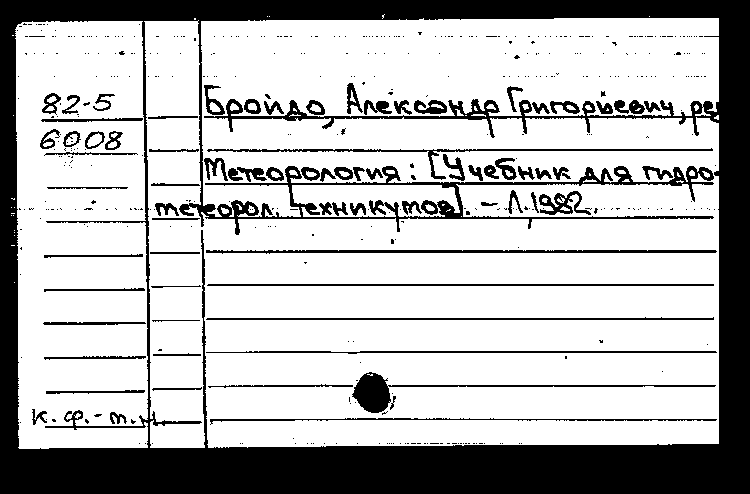 82-5 Бройдо, Александр Григорьевич, ред
6008
Метеорология: [Учебник для гидро-
метеорол. техникумов]. - Л. 1982.
к. ф.-м.н.